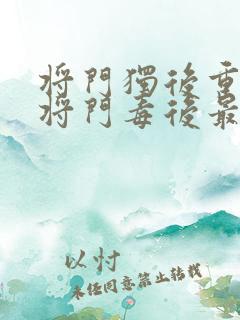 将門獨後重
将門毒後最
以忖
未经同意禁止转载